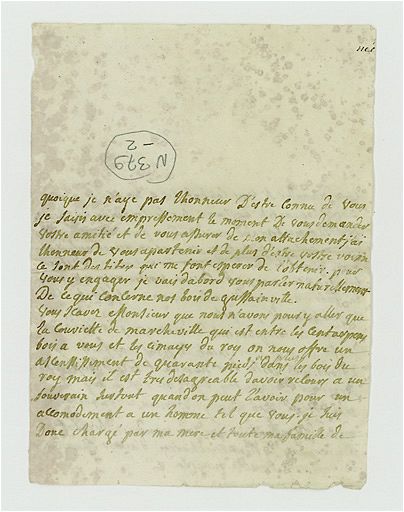 N 379
-2
quoique je n'aye pas lhonneur D'estre connu de vous
je saisis avec empressement le moment De vous demander
vostre amitié et de vous assurer de mon attachement j'ai
lhonneur de vous apartenir et de plus d'estre vostre voisin
ce sont des titres qui me font esperer de l'obtenir. pour
vous y engager je vais dabord vous parler naturellement
De ce qui concerne nos bois de
vous scavez Monsieur que nous n'avons pour y aller que
la de marcheville qui est entre les
bois a vous et les du roy on nous offre un
de quarante pieds dans les bois du
roy mais il est tres desagreable davoir recours a un
souverain surtout quand on peut l'avoir pour un
accomodement a un homme tel que vous. je suis
Donc chargé par ma mere et toute ma famille de